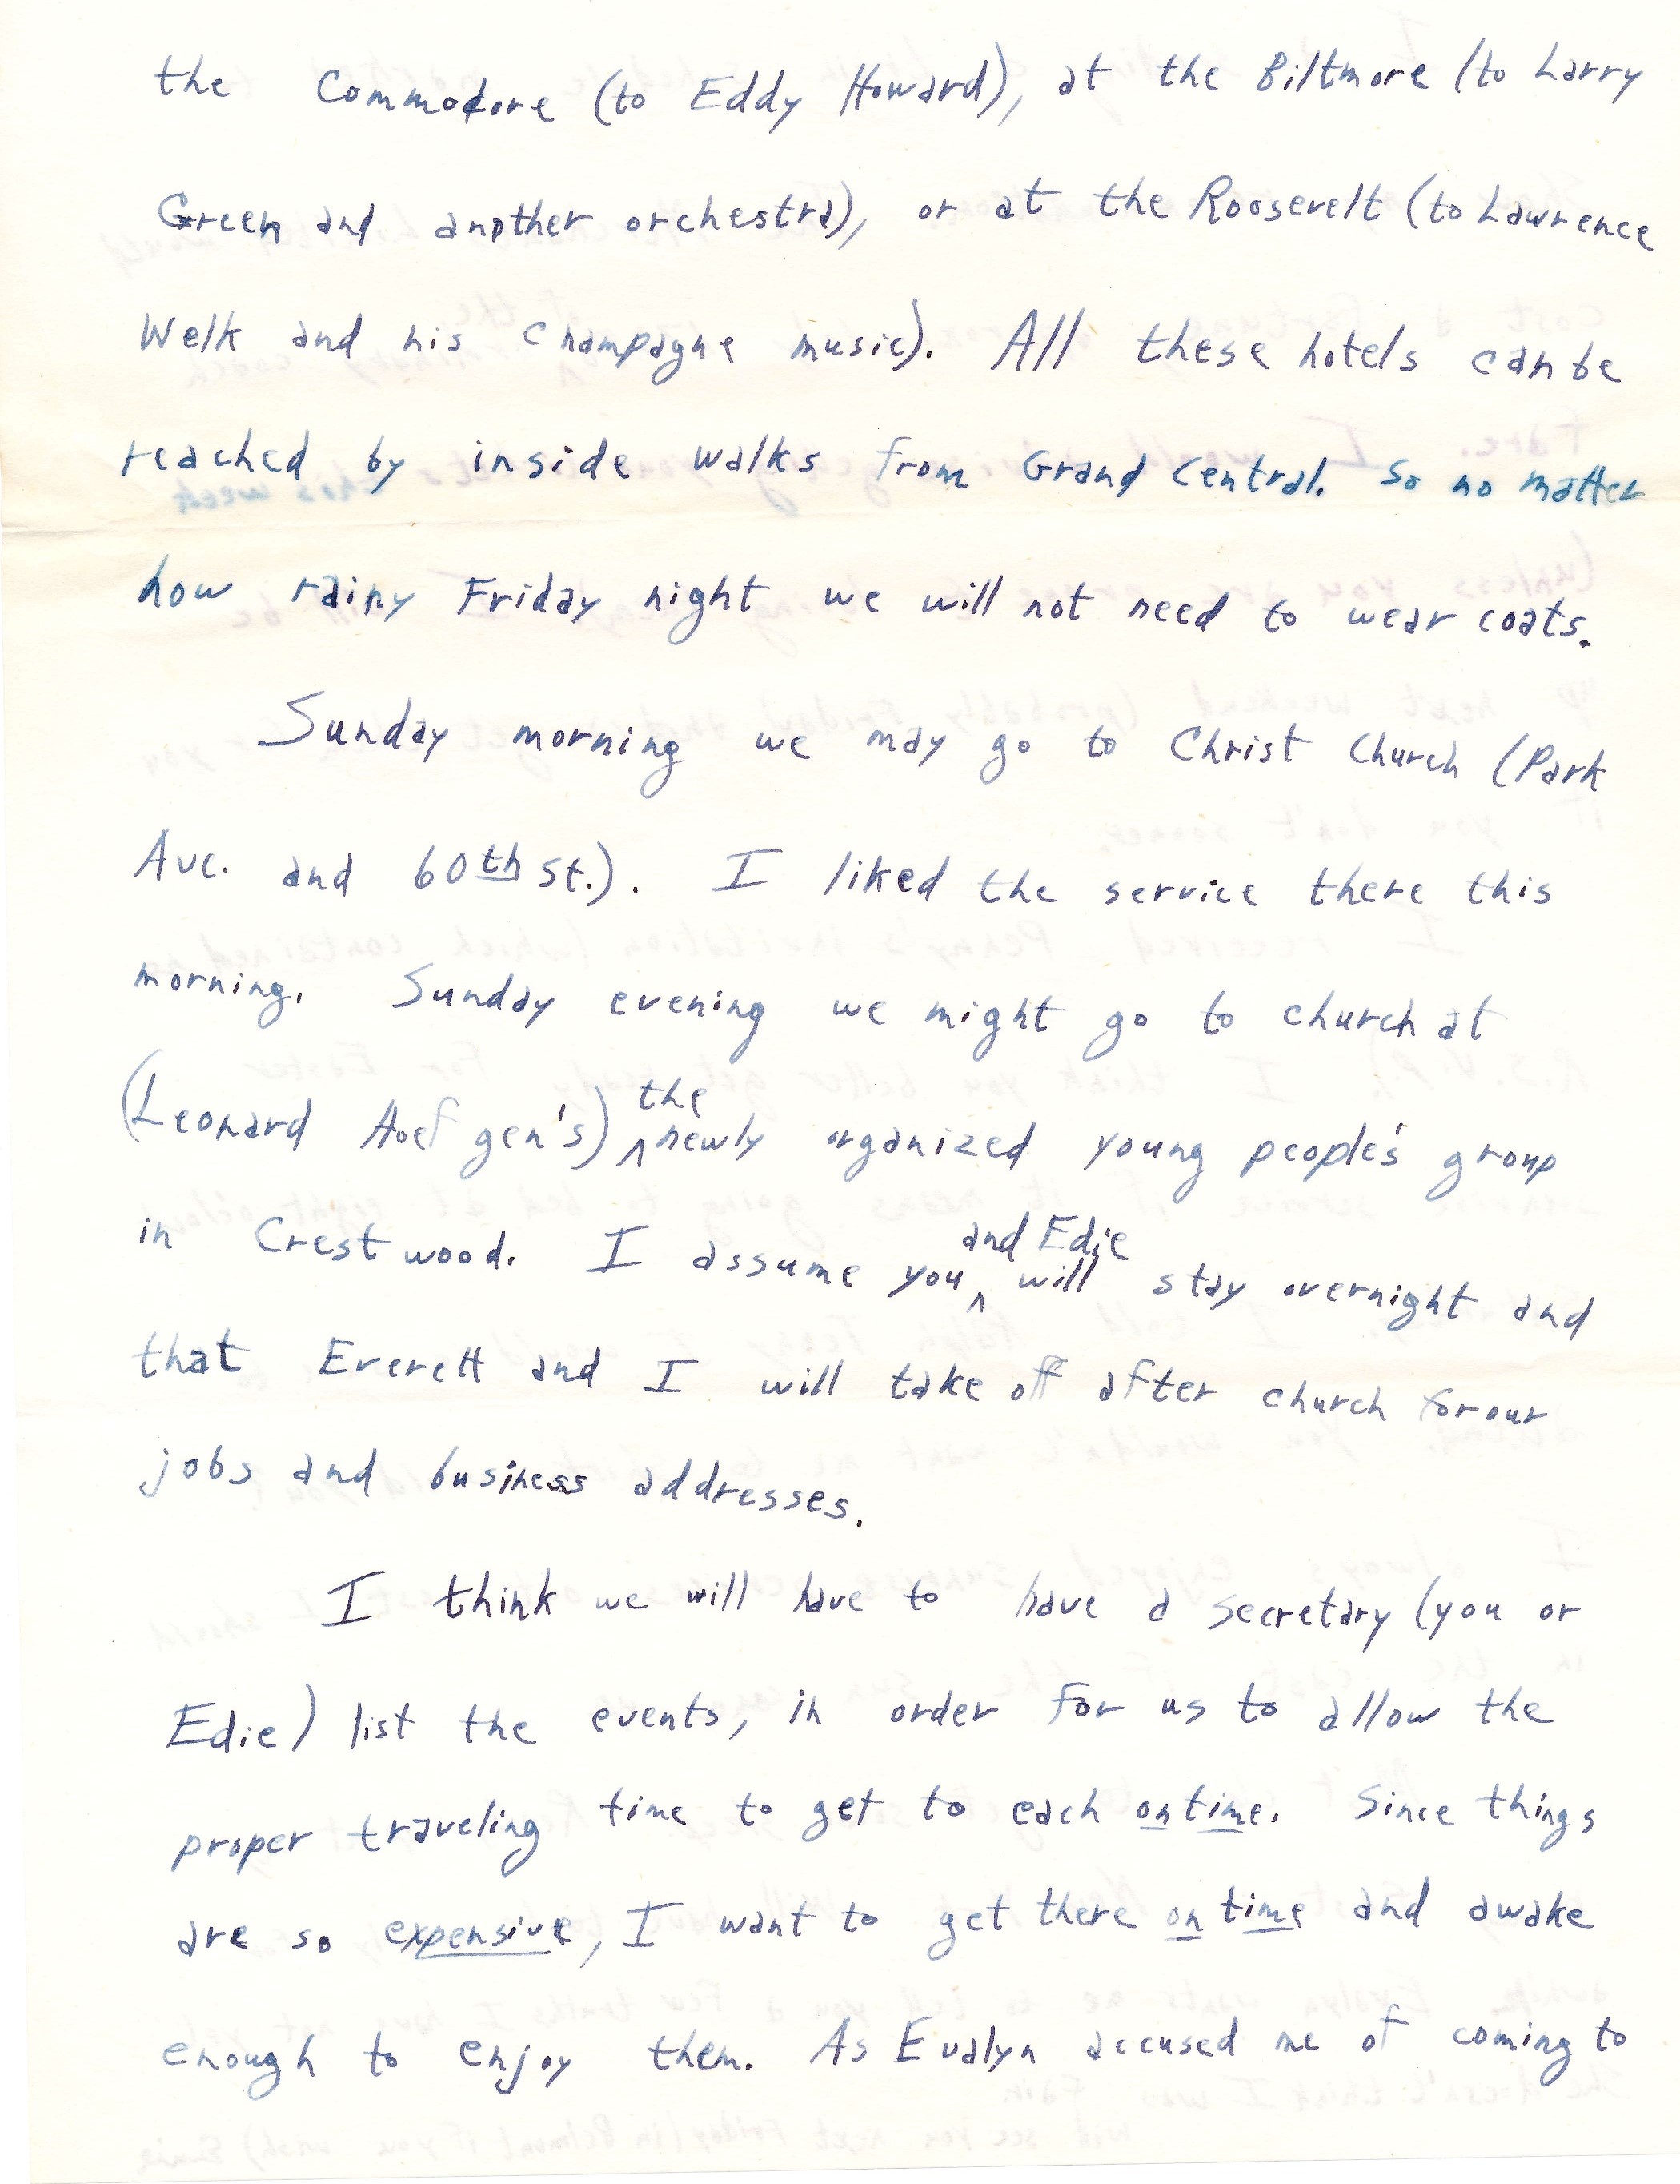 the Commodore (to Eddy Howard), at the Biltmore (to Larry
Green and another orchestra), or at the Roosevelt (to Lawrence
Welk and his Champagne music). All these hotels can be
reached by inside walks from Grand Central. So no matter
how rainy Friday night we will not need to wear coats.
Sunday morning we may go to Christ Church (Park
Ave. and 60th St.). I liked the service there this
morning. Sunday evening we might go to church at
(Leonard Hoefgen's) ^the newly organized young people's group
in Crestwood. I assume you ^and Edie will stay overnight and
that Everett and I will take off after church for our
jobs and business addresses.
I think we will have to have a secretary (you or
Edie) list the events, in order for us to allow the
proper traveling time to get to each on time. Since things
are so expensive, I want to get there on time and awake
enough to enjoy them. As Evalyn accused me of coming to